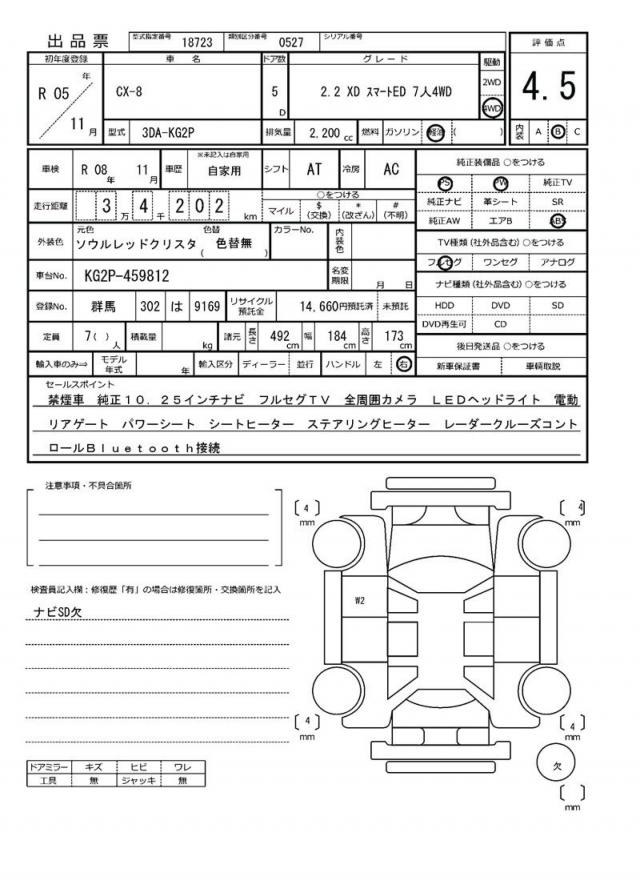 出品票 型式指定番号 18723 類別区分番号 0527 シリアル番号
評価点
4.5
内装 A B C
初年度登録 車名 ドア数 グレード 駆動
R 05 年 11 月
CX-8 5 D 2.2 XD スマートED 7人4WD 2WD 4WD
型式 3DA-KG2P 排気量 2,200 cc 燃料 ガソリン 軽油 ( )
車検 R 08 年 11 月 車歴 ※未記入は自家用 自家用 シフト AT 冷房 AC
走行距離 3 万 4 千 2 0 2 km ○をつける マイル $(交換) *(改ざん) #(不明)
外装色 元色 ソウルレッドクリスタ 色替 ( 色替無 ) カラーNo. 内装色
車台No. KG2P-459812 名変期限 月 日
登録No. 群馬 302 は 9169 リサイクル預託金 14,660円預託済 未預託
定員 7( )人 積載量 kg 諸元 長さ 492 cm 幅 184 cm 高さ 173 cm
輸入車のみ⇒ モデル年式 年 輸入区分 ディーラー 並行 ハンドル 左 右
純正装備品 ○をつける
PS PW 純正TV
純正ナビ 革シート SR
純正AW エアB ABS
TV種類(社外品含む) ○をつける
フルセグ ワンセグ アナログ
ナビ種類(社外品含む) ○をつける
HDD DVD SD
DVD再生可 CD
後日発送品 ○をつける
新車保証書 車輌取説
セールスポイント
禁煙車 純正10.25インチナビ フルセグTV 全周囲カメラ LEDヘッドライト 電動
リアゲート パワーシート シートヒーター ステアリングヒーター レーダークルーズコント
ロールBluetooth接続
注意事項・不具合箇所
検査員記入欄:修復歴「有」の場合は修復箇所・交換箇所を記入
ナビSD欠
ドアミラー キズ ヒビ ワレ
工具 無 ジャッキ 無
[ 4 ] mm
[ 4 ] mm
W2
[ 4 ] mm
[ 4 ] mm
欠
[ ] mm